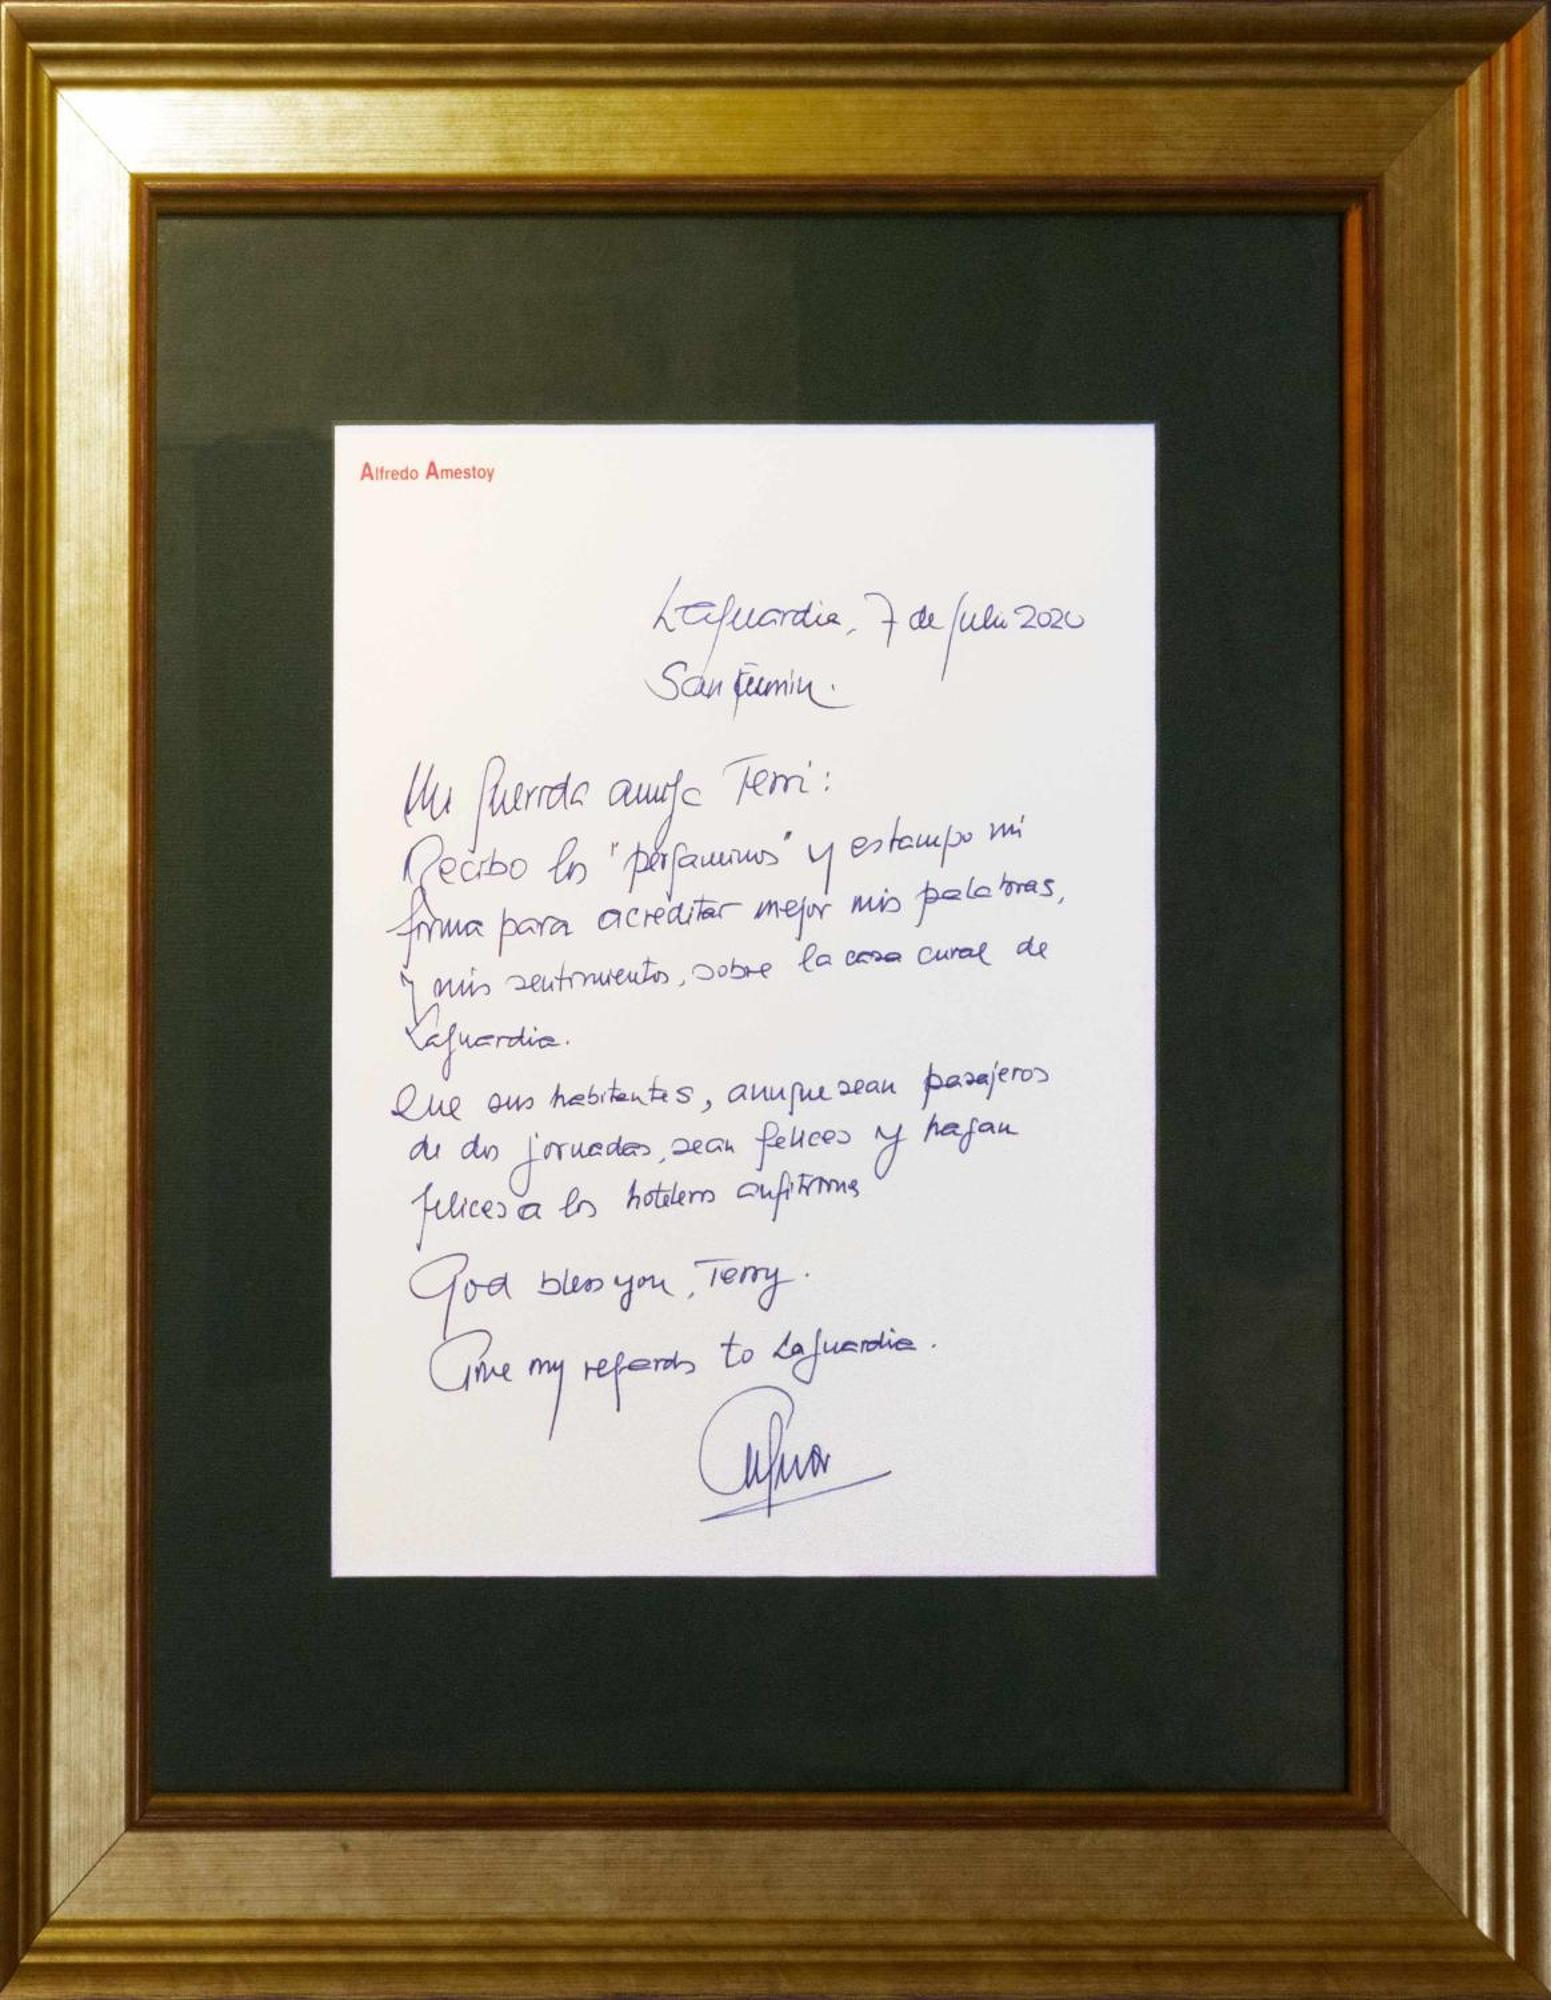 Alfredo Amestoy
Laguardia, 7 de Julio 2020
San Fermin.
Mi querida amiga Terri:
Recibo los "pergaminos" y estampo mi
firma para acreditar mejor mis palabras,
y mis sentimientos, sobre la casa cural de
Laguardia.
Que sus habitantes, aunque sean pasajeros
de dos jornadas, sean felices y hagan
felices a los hoteleros anfitriones
God bless you, Terry.
Give my regards to Laguardia.